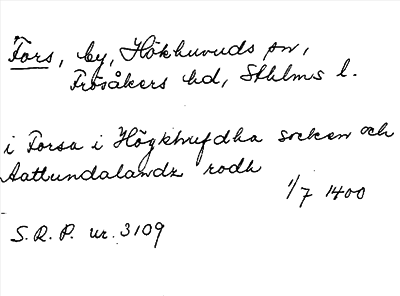 Fors, by, Hökhuvuds sn,
Frösåkers hd, Sthlms l.
i Forsa i Högkhufdha socken och
Aatlundalandz rodh
1/7 1400
S.R.P. nr. 3109